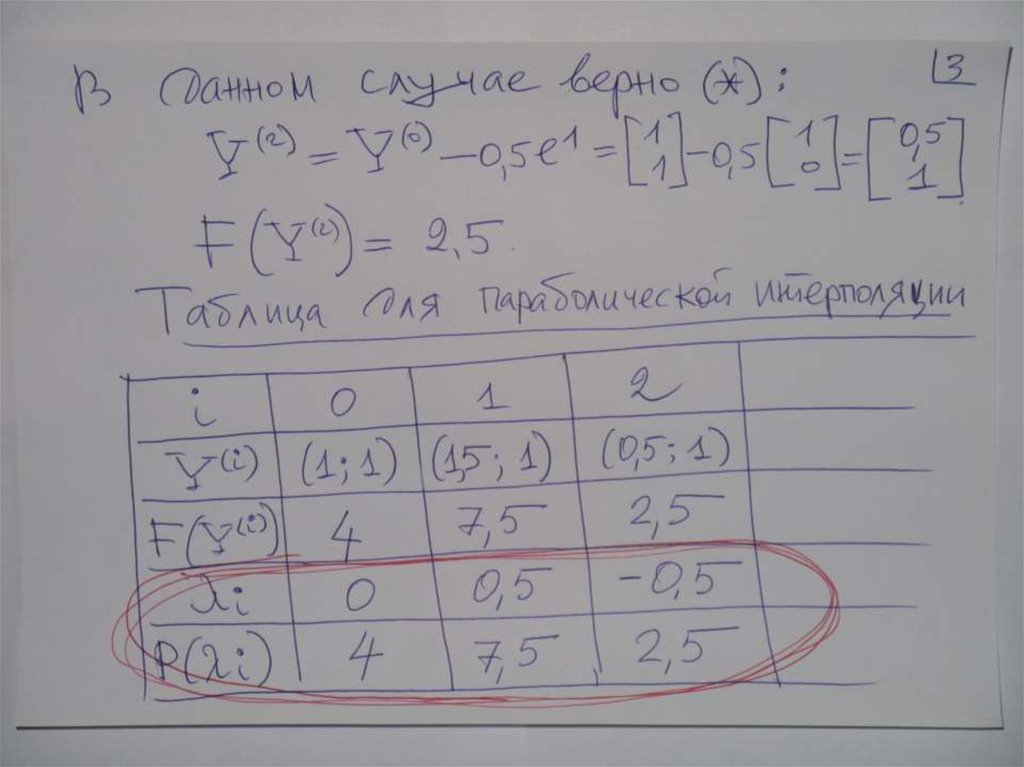 3
В данном случае верно (*):
Y⁽²⁾ = Y⁽⁰⁾ – 0,5e¹ = [1 1] – 0,5 [1 0] = [0,5 1]
F(Y⁽²⁾) = 2,5.
Таблица для параболической интерполяции
i 0 1 2
Y⁽ⁱ⁾ (1; 1) (1,5; 1) (0,5; 1)
F(Y⁽ⁱ⁾) 4 7,5 2,5
λi 0 0,5 –0,5
P(λi) 4 7,5 2,5